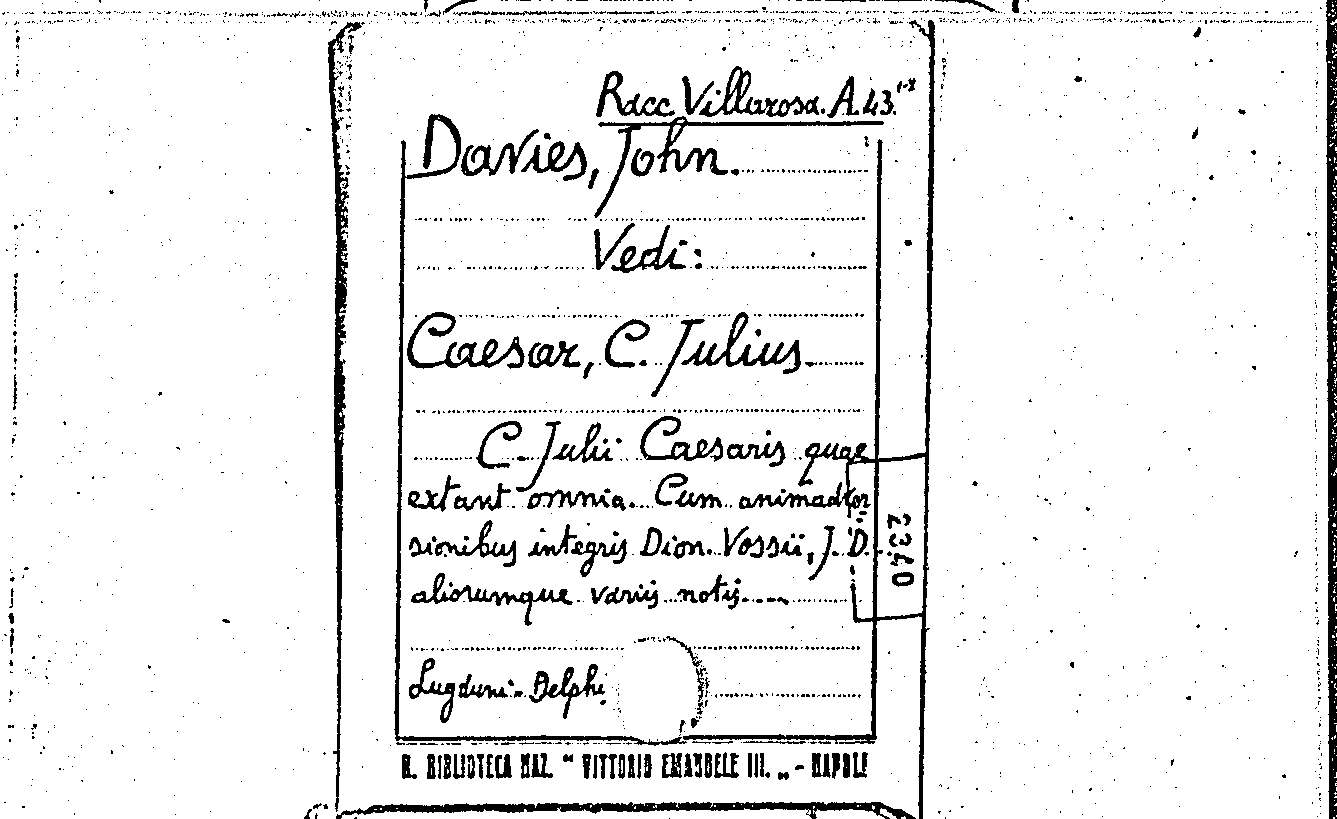 Racc. Villarosa. A. 43.¹⁻²
Davies, John.
Vedi:
Caesar, C. Julius.
C. Julii Caesaris quae
extant omnia. Cum animadver
sionibus integris Dion. Vossii, J. D.
aliorumque variis notis....
Lugduni-Delphi
2340
R. BIBLIOTECA NAZ. " VITTORIO EMANUELE III. „ - NAPOLI